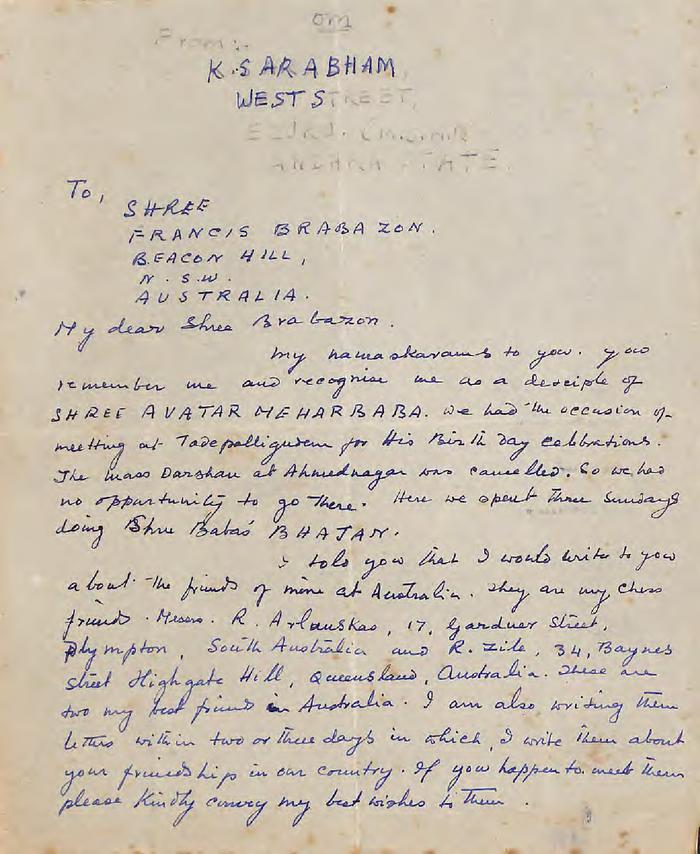 om
From:-
K. SARABHAM,
WEST STREET,
STATE.
To,
SHREE
FRANCIS BRABAZON.
BEACON HILL,
N.S.W.
AUSTRALIA.
My dear Shree Brabazon.
My namaskarams to you. you
remember me and recognise me as a desciple of
SHREE AVATAR MEHARBABA. We had the occasion of
meetting at Tadepalligudem for His Birth Day celbrations.
The mass Darshan at Ahmednagar was cancelled. So we had
no opportunity to go there. Here we spent three Sundays
doing Shree Baba's BHAJAN.
I told you that I would write to you
about the friends of mine at Australia. They are my chess
friends. Messrs. R. Arlauskas, 17, Gardner Street,
Plympton, South Australia and R. Zile, 34, Baynes
Street Highgate Hill, Queensland, Australia. These are
two my best friends in Australia. I am also writing them
letters within two or three days in which, I write them about
your friendships in our country. If you happen to meet them
please kindly convey my best wishes to them.